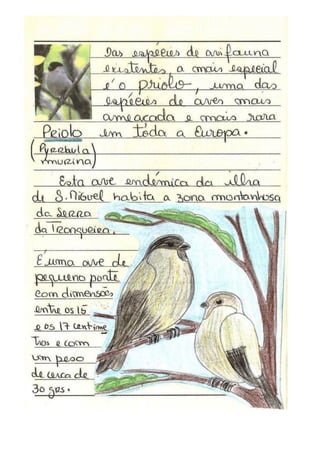 Das espécies de avifauna
existentes, a mais especial
é o priolo, uma das
espécies de aves mais
ameaçada e mais rara
em toda a Europa.
Peiolo
(Pyrrhula
murina)
Esta ave endémica da ilha
de S. Miguel habita a zona montanhosa
da Serra
da Tronqueira.
É uma ave de
pequeno porte
com dimensões
entre os 15
e os 17 centime
tros e com
um peso
de cerca de
30 grs.